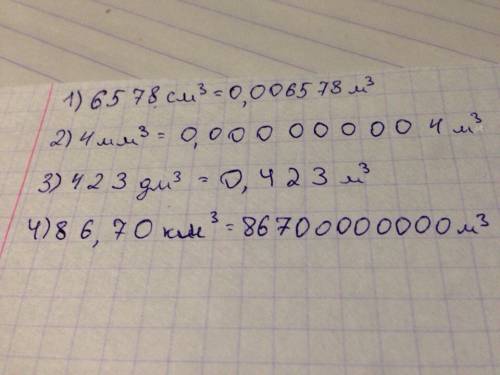 1) 6578 см³ = 0,006578 м³
2) 4 мм³ = 0,000 00 000 4 м³
3) 423 дм³ = 0,423 м³
4) 86,70 км³ = 86700000000 м³